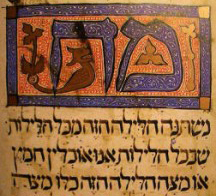 מה
נשתנה הלילה הזה מכל הלילות
שבכל הלילות אנו אוכלין חמץ
או מצה הלילה הזה כלו מצה